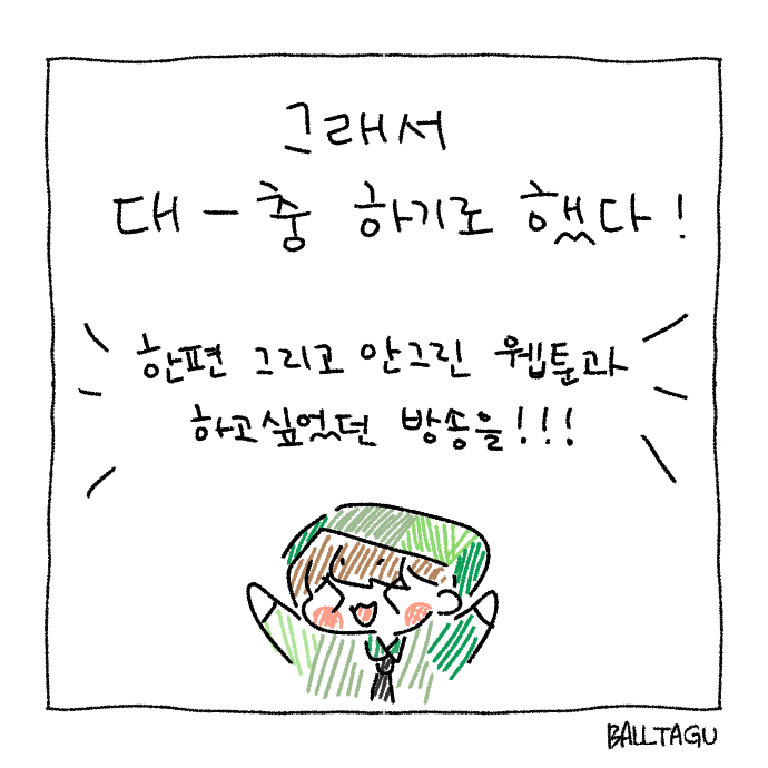 그래서
대-충 하기로 했다!
한편 그리고 안그린 웹툰과
하고싶었던 방송을!!!
BALLTAGU